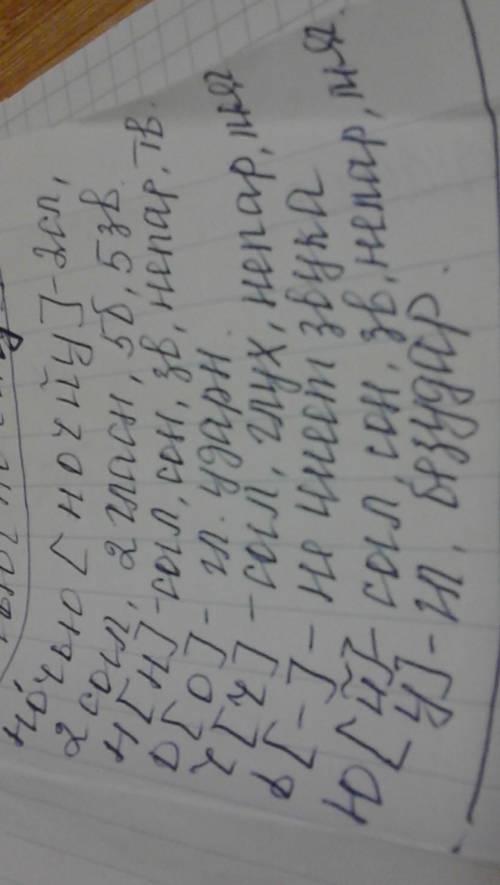 ночью [ночйу]-2сл,
2 согл, 2 гласн, 5б, 5зв.
н[н]-согл, сон, зв, непар, тв.
о[о]-гл. ударн.
ч[ч]-согл, глух, непар, мяг
ь[-]-не имеет звука
ю[й]-согл, сон, зв, непар, мяг.
у]-гл, безудар.